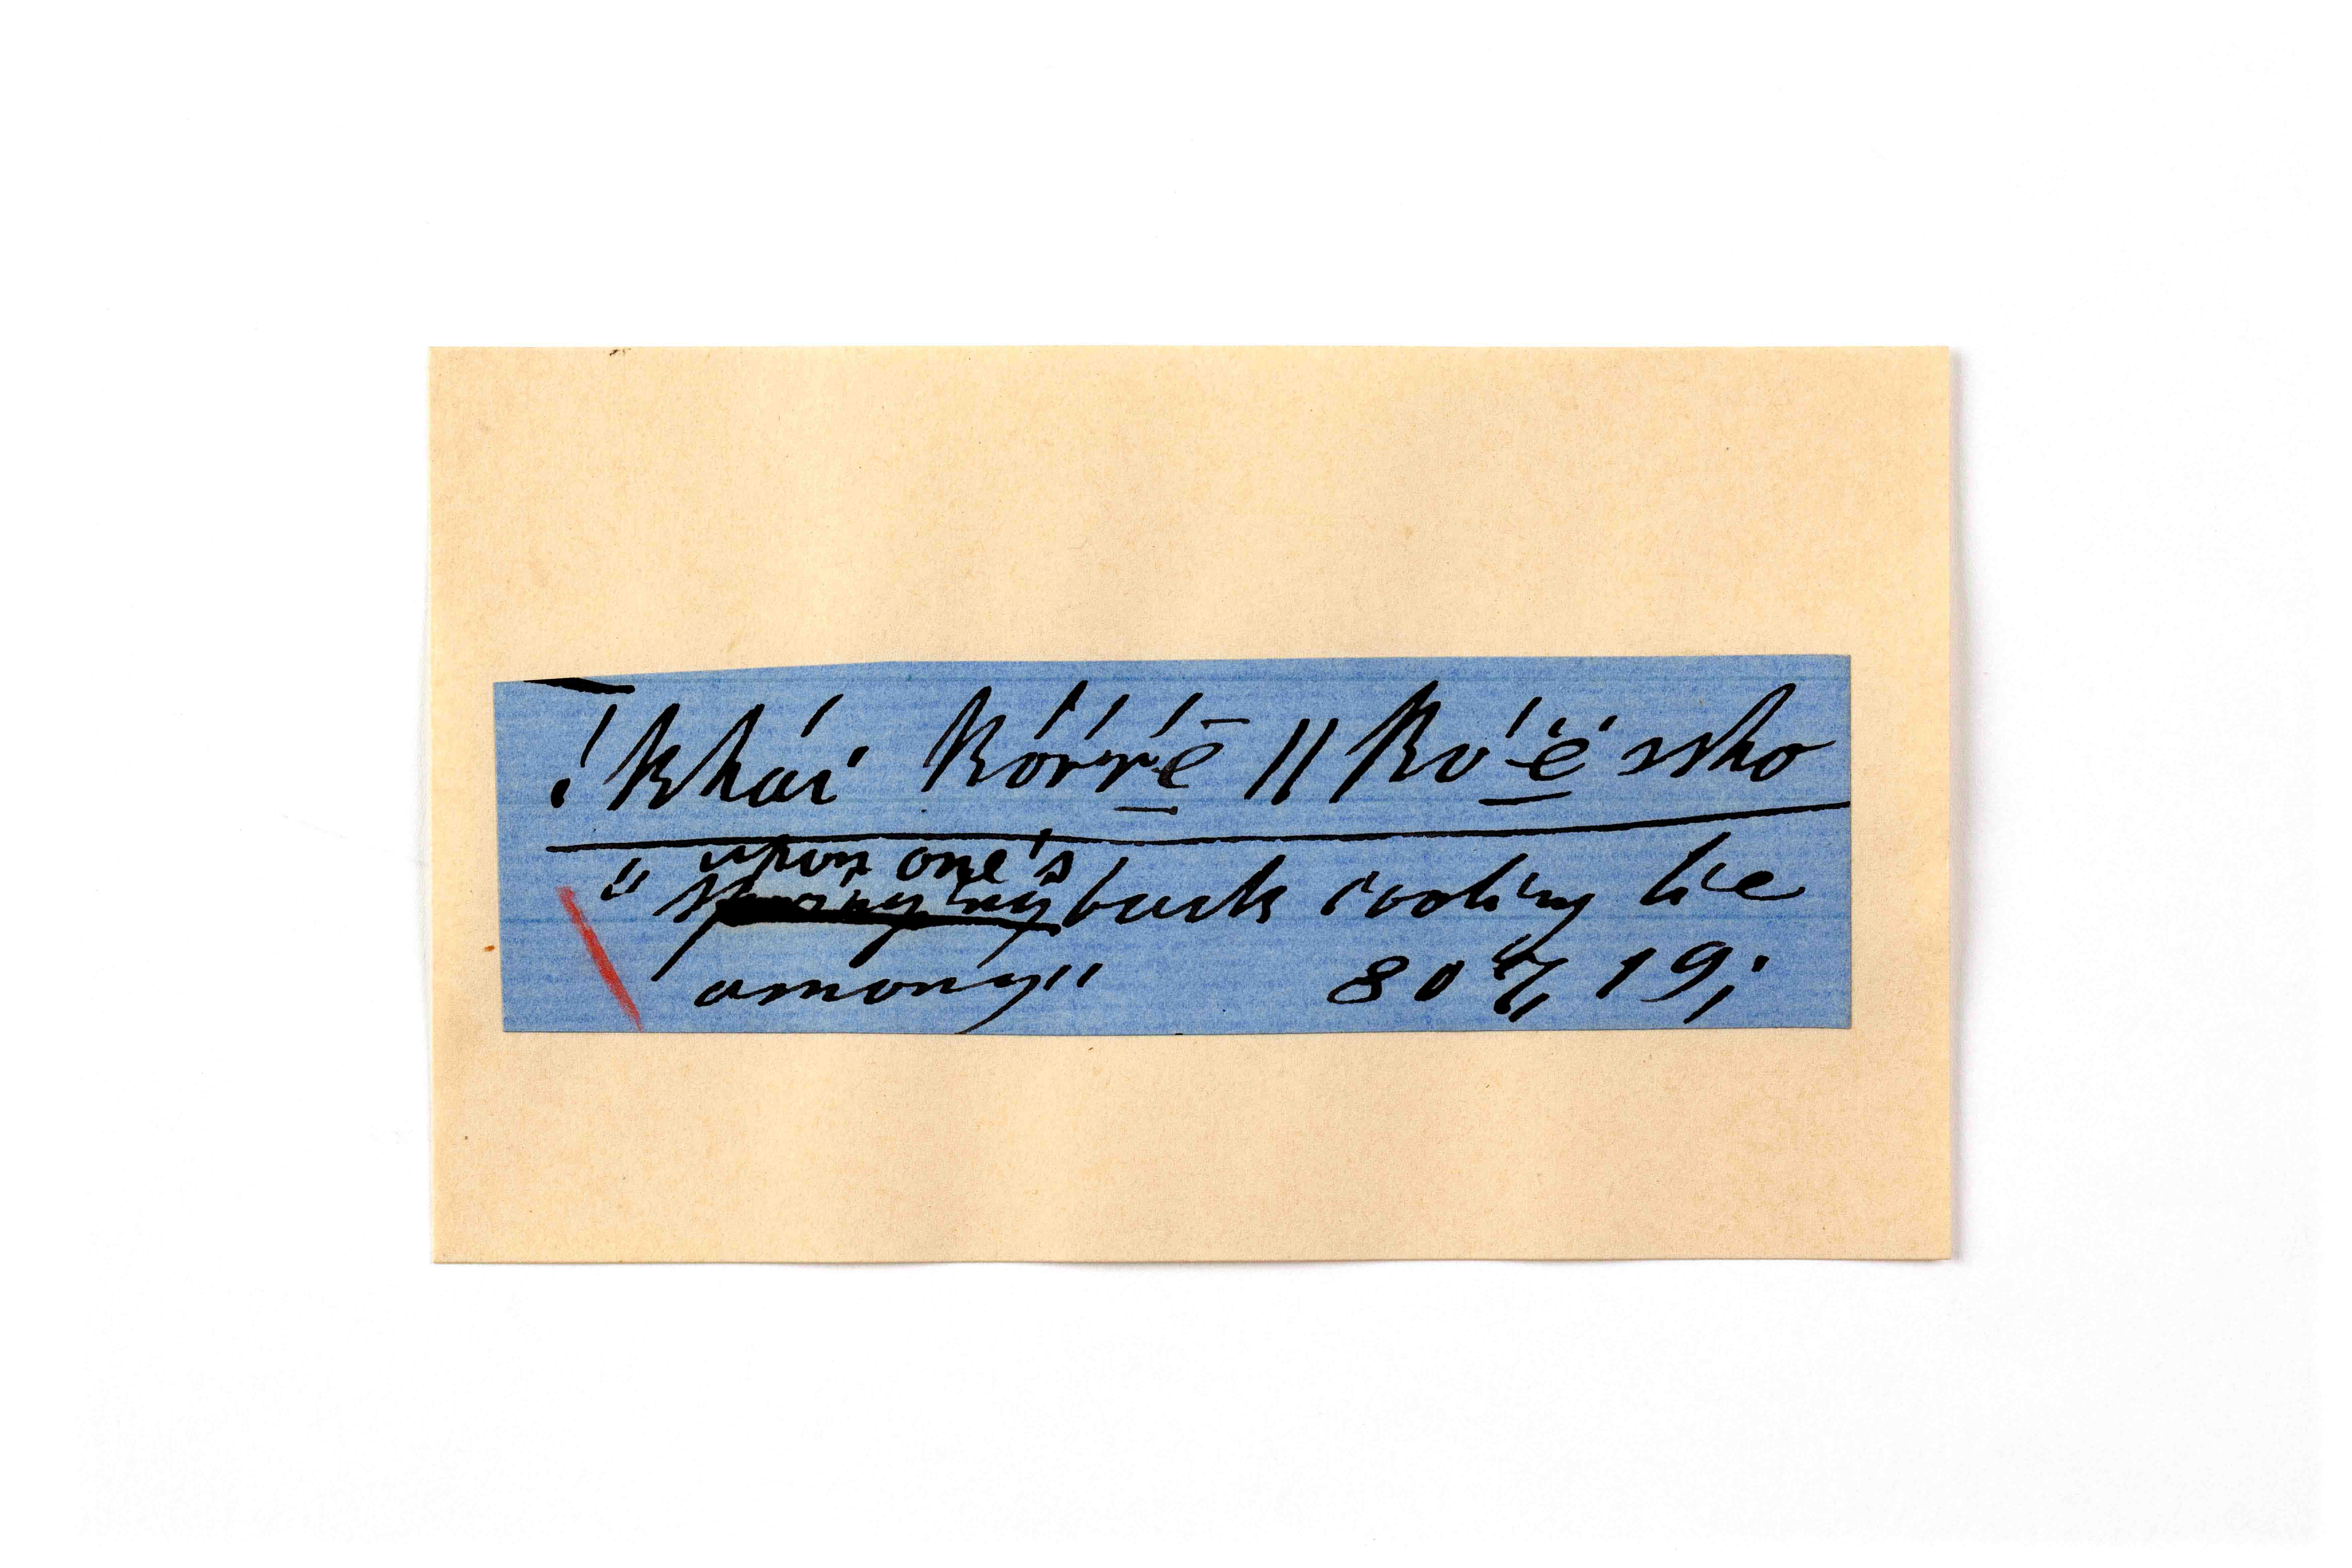 !khái kórrĕ || kú-ĕ ssho
upon one's
" back cooling lie
among" 80 % 19;